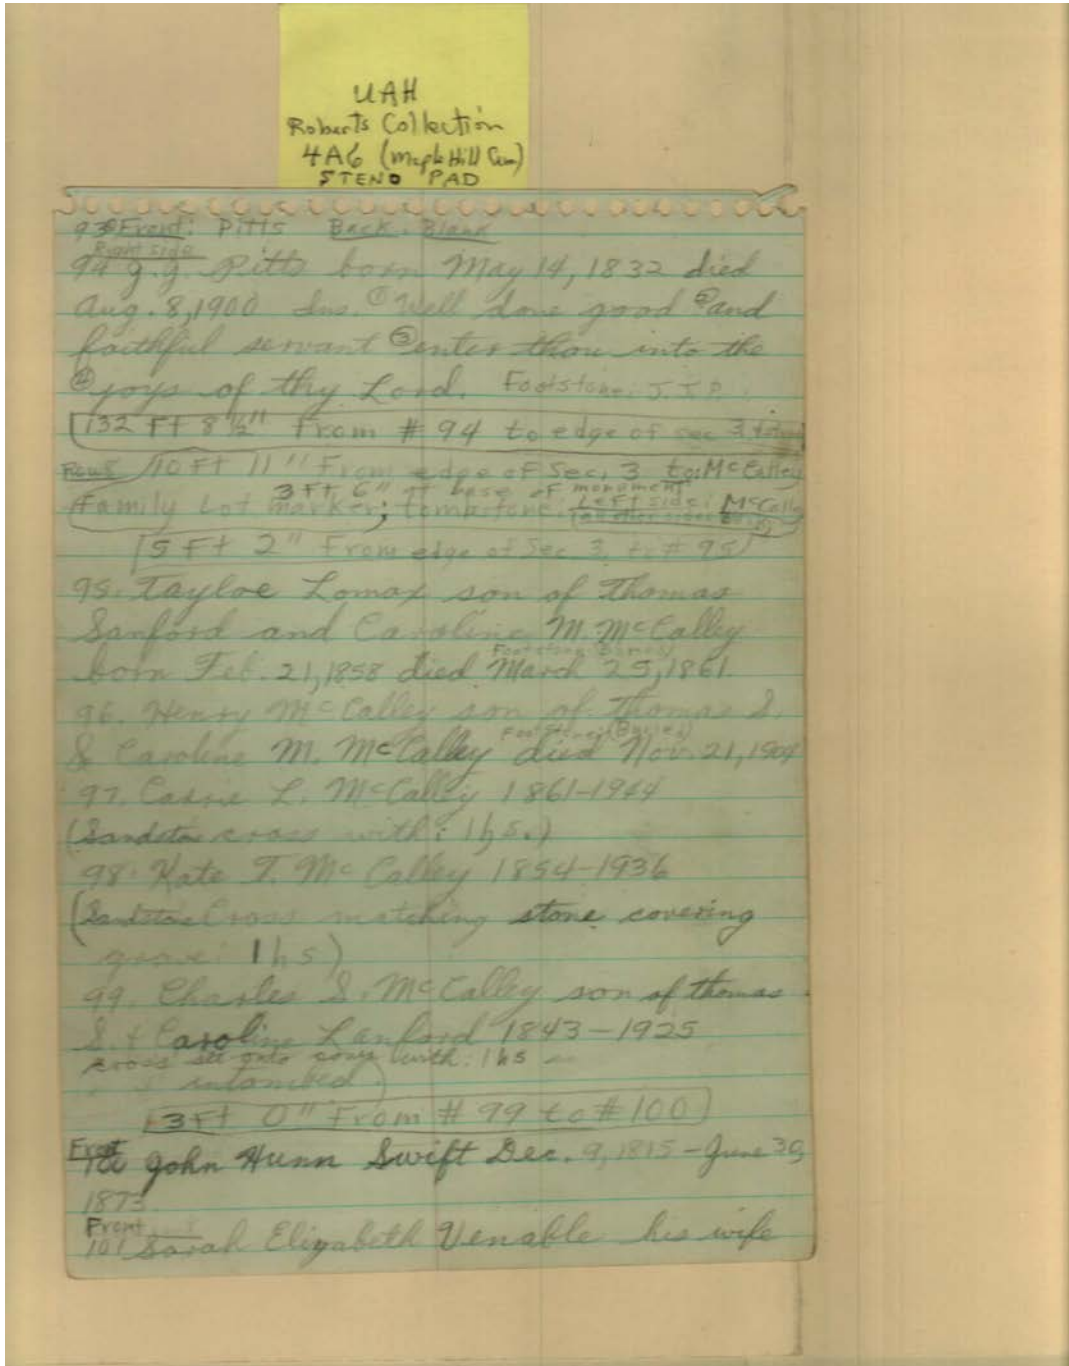 UAH
Roberts Collection
4A6 (Maple Hill Cem)
STENO PAD
93 Front: Pitts Back: Blank
Right side
94 J.J. Pitts born May 14, 1832 died
Aug. 8, 1900 ins. ① Well done good ② and
faithful servant ③ enter thou into the
④ joys of thy Lord. Footstone: J.J.P.
132 Ft 8 ½" From # 94 to edge of sec 3
Row 5 10 Ft 11" From edge of Sec. 3 to: McCalley
3 Ft 6" at base of monument
Family Lot marker; tombstone. Left side: McCalley
5 Ft 2" From edge of Sec 3. to # 95
95. Tayloe Lomax son of Thomas
Sanford and Caroline M. McCalley
Footstone:
born Feb. 21, 1858 died March 25, 1861.
96. Henry McCalley son of Thomas S.
Footstone: (Buried)
& Caroline M. McCalley died Nov. 21, 1904
97. Carrie L. McCalley 1861-1944
(Sandstone cross with: Ihs.)
98. Kate T. McCalley 1854-1936
(Sandstone Cross matching stone covering
grave: Ihs)
99. Charles S. McCalley son of Thomas
S. & Caroline Lanford 1843-1925
cross set onto with: Ihs
intombed)
3 Ft 0" From # 99 to # 100
Front
100 John Hunn Swift Dec. 9, 1815 - June 30,
1873
Front
101 Sarah Elizabeth Venable his wife